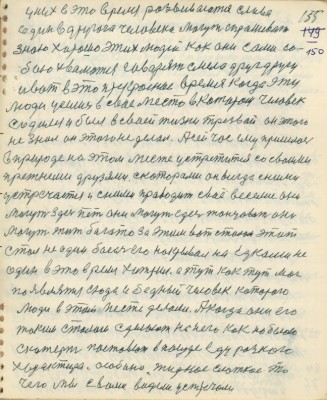 у них в это время розвивалося слава
один в другога человека могут спрашивать
155
149
150
знаю хорошо этих людей как они сами со-
бою хвалятся говорят смело друг другу
и вот в это прекрасное время когда эти
люди у себя в своё место в котором человек
родился и был в своей жизни трезвой он этого
не знал он этого не делал. А сей час ему пришлось
в природе на этом месте встретится со своими
прежними друзями, с которами он всегда с ними
встречается и с ними проводит своё веселие они
могут здесь пет они могут здесь танцовать они
могут тот богато за этим вот столом этит
стол не один богач его накривал на
один в это время хитрил. а тут как тут мог
появится сюда и бедный человек которого
люди в этом месте делали. А когда они его
таким столом сделают на него как новаю
скатерть поставят в посуде еду розного
характера, особено жирное сладкое то
чего мы с вами видем устречаем